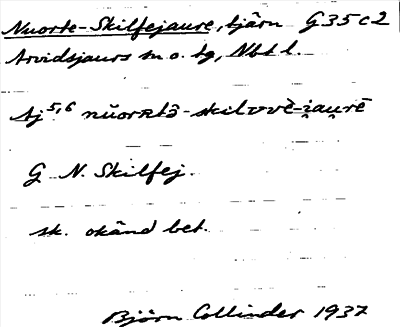 Nuorte-Skilfejaure, tjärn G35c2
Arvidsjaurs sn o. tg, Nbt l.
Aj⁵,⁶ nŭorᴙtə̑-skilvvè-i̯au̯rē
G N. Skilfej.
sk. okänd bet.
Björn Collinder 1937